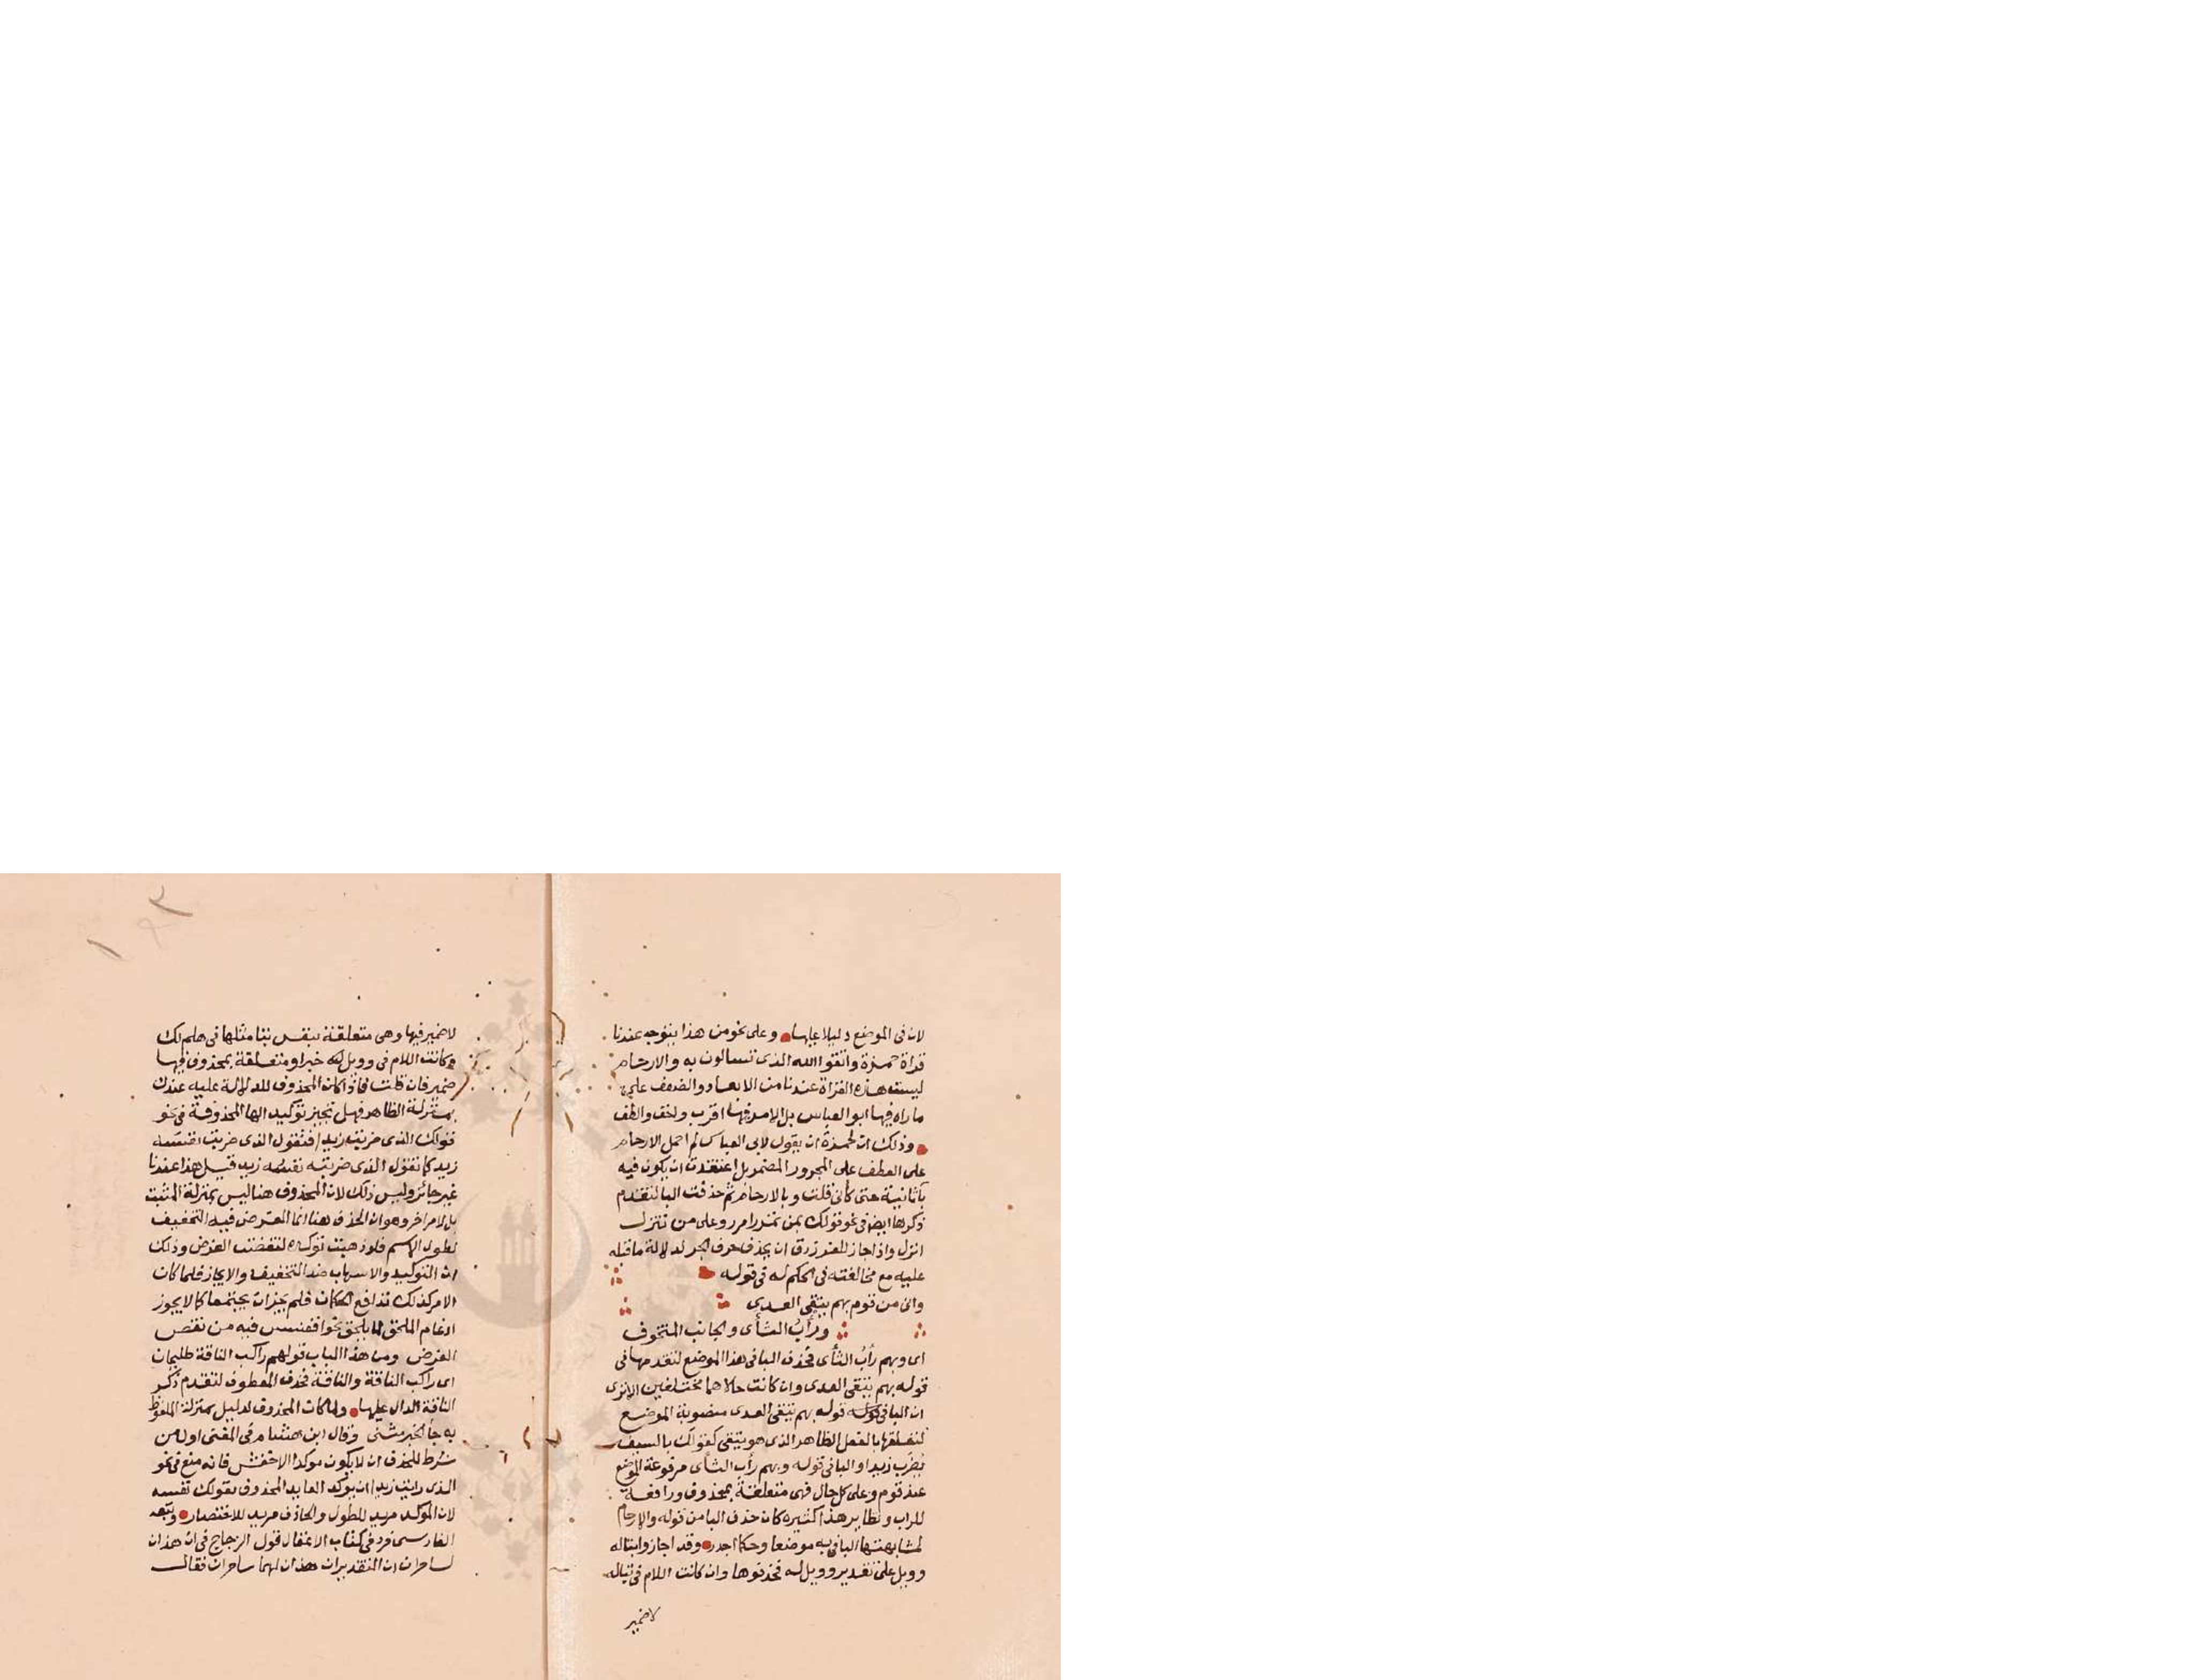 لان فى الموضع دليلا عليها وعلى نحو من هذا يتوجه عندنا
قراة حمزة واتقوا الله الذى تسالون به والارحام
ليست هذه القراة عندنا من الابعاد والضعف على
ما راه فيها ابو العباس بل الامر فيها اقرب واخف والطف
وذلك ان لحمزة ان يقول لابى العباس لم احمل الارحام
على العطف على المجرور المضمر بل اعتقدت ان يكون فيه
با ثانية حتى كأنى قلت وبالارحام ثم حذفت البا لتقدم
ذكرها ايضا فى نحو قولك بمن تمرر امرر وعلى من تنزل
انزل واذا جاز للفرزدق ان يحذف حرف الجر لدلالة ما قبله
عليه مع مخالفته فى الحكم له فى قوله
وانى من قوم بهم يتقى العدى
ورأب الثأى والجانب المتخوف
اى وبهم رأب الثأى فحذف البا فى هذا الموضع لتقدمها فى
قوله بهم يتقى العدى وان كانت حالاهما مختلفين الا ترى
ان البا فى قوله بهم يتقى العدى منصوبة الموضع
لتعلقها بالفعل الظاهر الذى هو يتقى كقولك بالسيف
يضرب زيد او البا فى قوله وبهم رأب الثأى مرفوعة الموضع
عند قوم وعلى كل حال فهى متعلقة بمحذوف ورافعة
للراب ونظاير هذا كثيرة كان حذف البا من قوله والارحام
لمشابهتها البا فى به موضعا وحكما اجدر وقد اجازوا تبا له
وويل على تقدير وويل له فحذفوها وان كانت اللام فى تبا له
لا ضمير
لا ضمير فيها وهى متعلقة بنفس تبا مثلها فى هلم لك
وكانت اللام فى وويل له خبرا ومتعلقة بمحذوف فيها
ضمير فان قلت فاذا كان المحذوف للدلالة عليه عندك
بمنزلة الظاهر فهل تجيز توكيد الها المحذوفة فى نحو
قولك الذى ضربت زيد فتقول الذى ضربت نفسه
زيد كما تقول الذى ضربته نفسه زيد قيل هذا عندنا
غير جائز وليس ذلك لان المحذوف هنا ليس بمنزلة المثبت
بل لامر اخر وهو ان الحذف هنا انما الغرض فيه التخفيف
لطول الاسم فلو ذهبت توكده لنقضت الغرض وذلك
ان التوكيد والاسهاب ضد التخفيف والايجاز فلما كان
الامر كذلك تدافع الحكمان فلم يجز ان يجتمعا كما لا يجوز
ادغام الملحق لما يلحق نحو اقعنسس فيه من نقض
الغرض ومن هذا الباب قولهم راكب الناقة طليحان
اى راكب الناقة والناقة فحذف المعطوف لتقدم ذكر
الناقة الدال عليها ولما كان المحذوف لدليل بمنزلة الملفوظ
به جا الخبر مثنى وقال ابن هشام فى المغنى اول من
شرط للحذف ان لا يكون موكدا الاخفش فانه منع فى نحو
الذى رايت زيد ان يوكد العايد المحذوف بقولك نفسه
لان الموكد مريد للطول والحاذف مريد للاختصار وتبعه
الفارسى فرد فى كتاب الاغفال قول الزجاج فى ان هذان
لساحران ان التقدير ان هذان لهما ساحران فقال